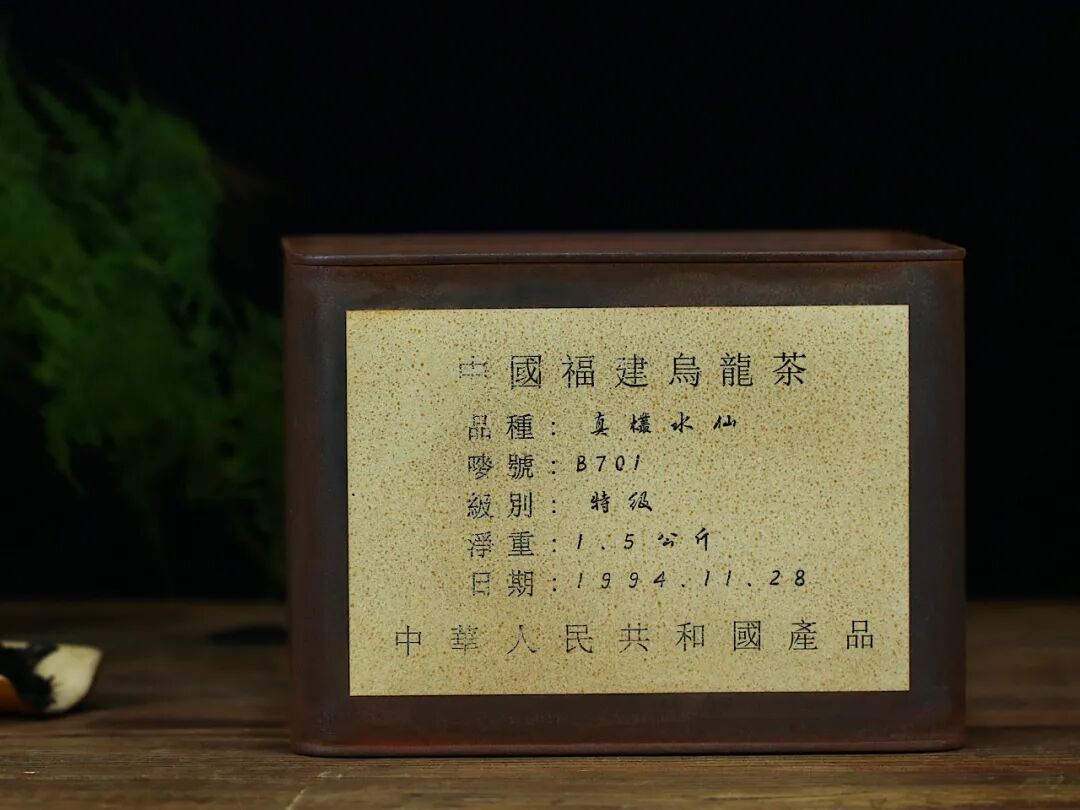 中國福建烏龍茶
品種：真欉水仙
嘜號：B701
級別：特级
淨重：1.5公斤
日期：1994.11.28
中華人民共和國產品